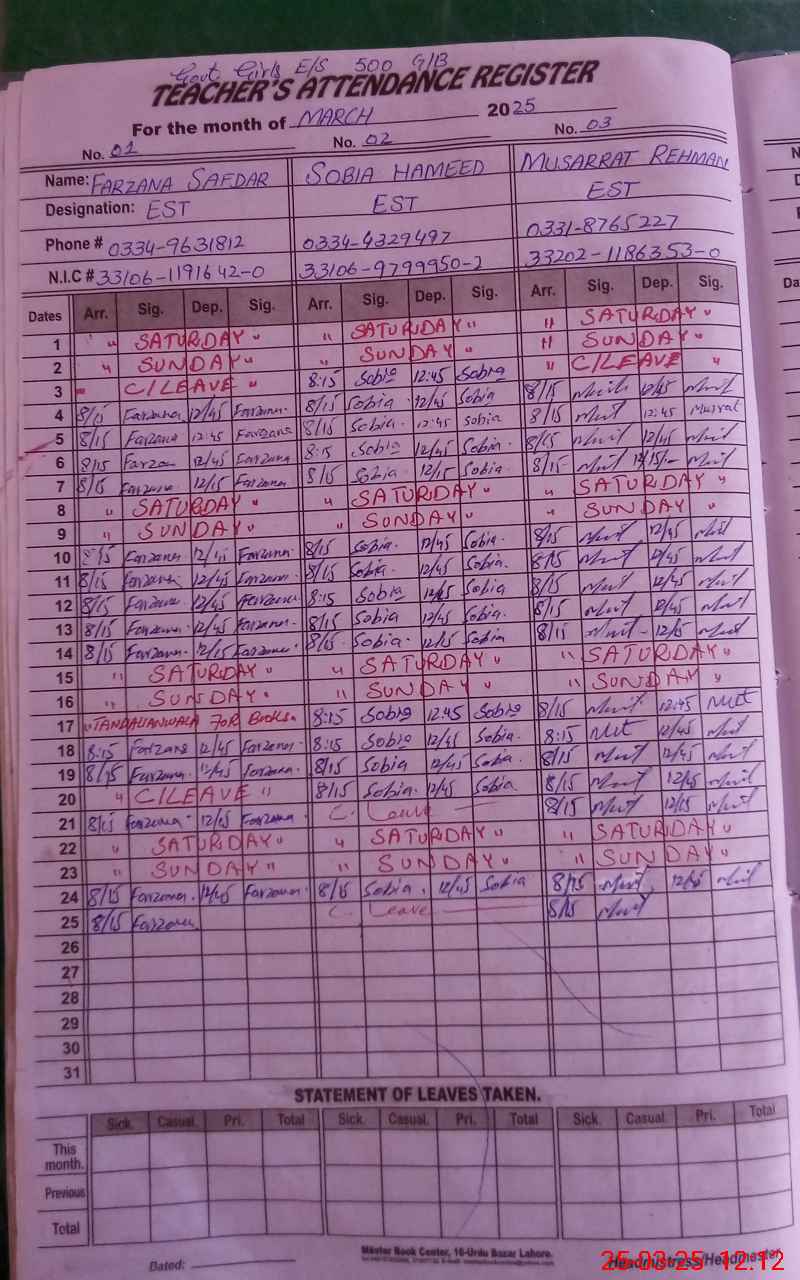 Govt Girls E/S 500 G/B
TEACHER'S ATTENDANCE REGISTER
For the month of MARCH 2025
No. 01 No. 02 No. 03
Name: FARZANA SAFDAR SOBIA HAMEED MUSARRAT REHMAN
Designation: EST EST EST
Phone # 0334-9631812 0334-4329497 0331-8765227
N.I.C # 33106-1191642-0 33106-9799950-2 33202-1186353-0
Dates Arr. Sig. Dep. Sig. Arr. Sig. Dep. Sig. Arr. Sig. Dep. Sig.
1 " SATURDAY " " SATURDAY " " SATURDAY "
2 " SUNDAY " " SUNDAY " " SUNDAY "
3 " C/LEAVE " 8:15 Sobia 12:45 Sobia " C/LEAVE "
4 8/15 Farzana 12/45 Farzana. 8/15 Sobia. 12/45 Sobia 8/15 12/45
5 8/15 Farzana 12:45 Farzana 8/15 Sobia. 12:45 Sobia 8/15 12:45 Musrat
6 8/15 Farzana 12/45 Farzana 8:15 Sobia 12/45 Sobia. 8/15 12/45
7 8/15 Farzana 12/15 Farzana 8/15 Sobia. 12/15 Sobia. 8/15 12/15
8 " SATURDAY " " SATURDAY " " SATURDAY "
9 " SUNDAY " " SUNDAY " " SUNDAY "
10 8/15 Farzana 12/45 Farzana. 8/15 Sobia. 12/45 Sobia. 8/15 12/45
11 8/15 Farzana. 12/45 Farzana. 8/15 Sobia. 12/45 Sobia. 8/15 12/45
12 8/15 Farzana. 12/45 Farzana. 8:15 Sobia 12/45 Sobia 8/15 12/45
13 8/15 Farzana. 12/45 Farzana. 8/15 Sobia 12/45 Sobia. 8/15 12/45
14 8/15 Farzana. 12/15 Farzana. 8/15 Sobia. 12/15 Sobia. 8/15 12/15
15 " SATURDAY " " SATURDAY " " SATURDAY "
16 " SUNDAY " " SUNDAY " " SUNDAY "
17 "TANDALIANWALA FOR Books. 8:15 Sobia 12:45 Sobia 8/15 12:45
18 8:15 Farzana 12/45 Farzana. 8:15 Sobia 12/45 Sobia. 8:15 12/45
19 8/15 Farzana. 12/45 Farzana. 8/15 Sobia 12/45 Sobia. 8/15 12/45
20 " C/LEAVE " 8/15 Sobia. 12/45 Sobia. 8/15 12/45
21 8/15 Farzana. 12/15 Farzana C. Leave 8/15 12/15
22 " SATURDAY " " SATURDAY " " SATURDAY "
23 " SUNDAY " " SUNDAY " " SUNDAY "
24 8/15 Farzana. 12/45 Farzana. 8/15 Sobia. 12/45 Sobia 8/15 12/45
25 8/15 Farzana C. Leave 8/15
26
27
28
29
30
31
STATEMENT OF LEAVES TAKEN.
Sick. Casual. Pri. Total Sick. Casual. Pri. Total Sick. Casual. Pri. Total
This month.
Previous
Total
Dated: Master Book Center, 16-Urdu Bazar Lahore. Headmistress/Headmaster
25-03-25 12:12